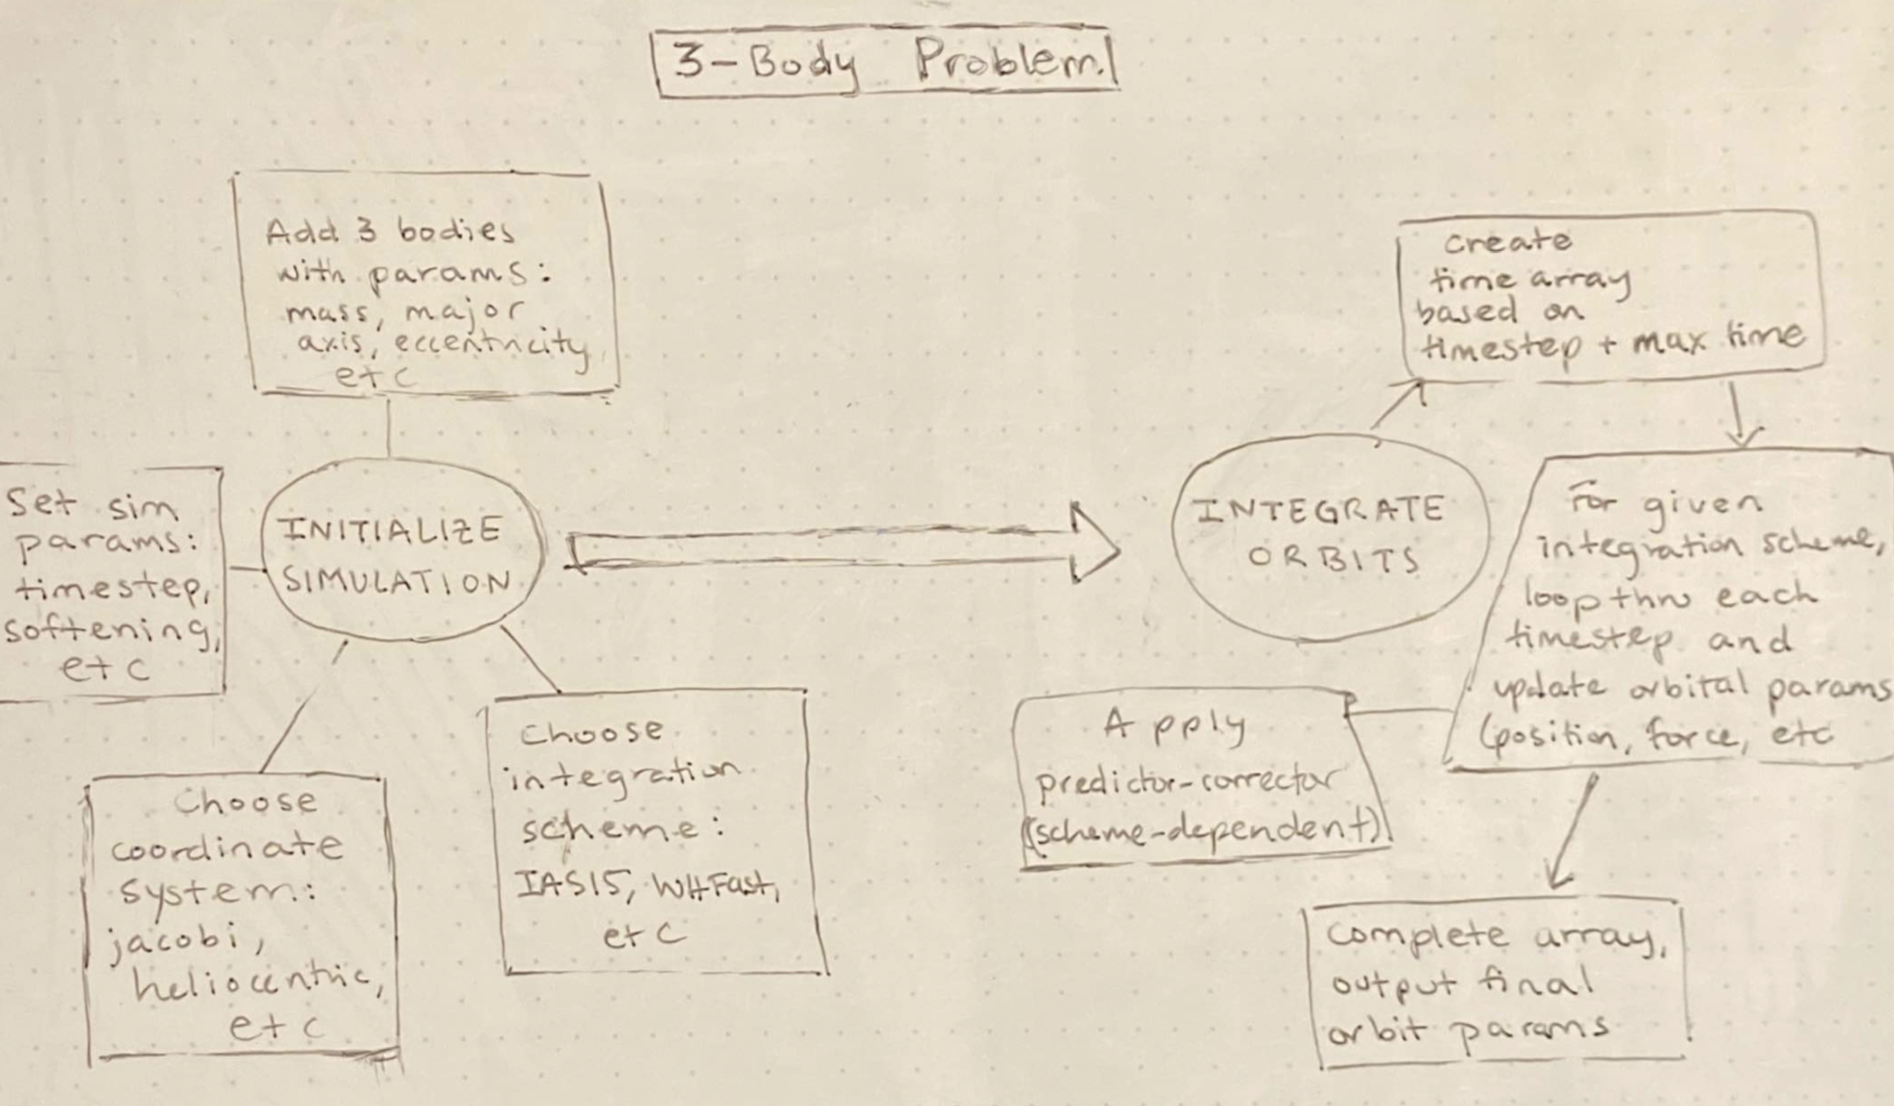 3-Body Problem
Add 3 bodies
with params:
mass, major
axis, eccentricity,
etc
Set sim
params:
timestep,
softening,
etc
INITIALIZE
SIMULATION
Choose
coordinate
system:
jacobi,
heliocentric,
etc
Choose
integration
scheme:
IAS15, WHFast,
etc
INTEGRATE
ORBITS
create
time array
based on
timestep + max time
For given
integration scheme,
loop thru each
timestep and
update orbital params
(position, force, etc
Apply
predictor-corrector
(scheme-dependent)
Complete array,
output final
orbit params